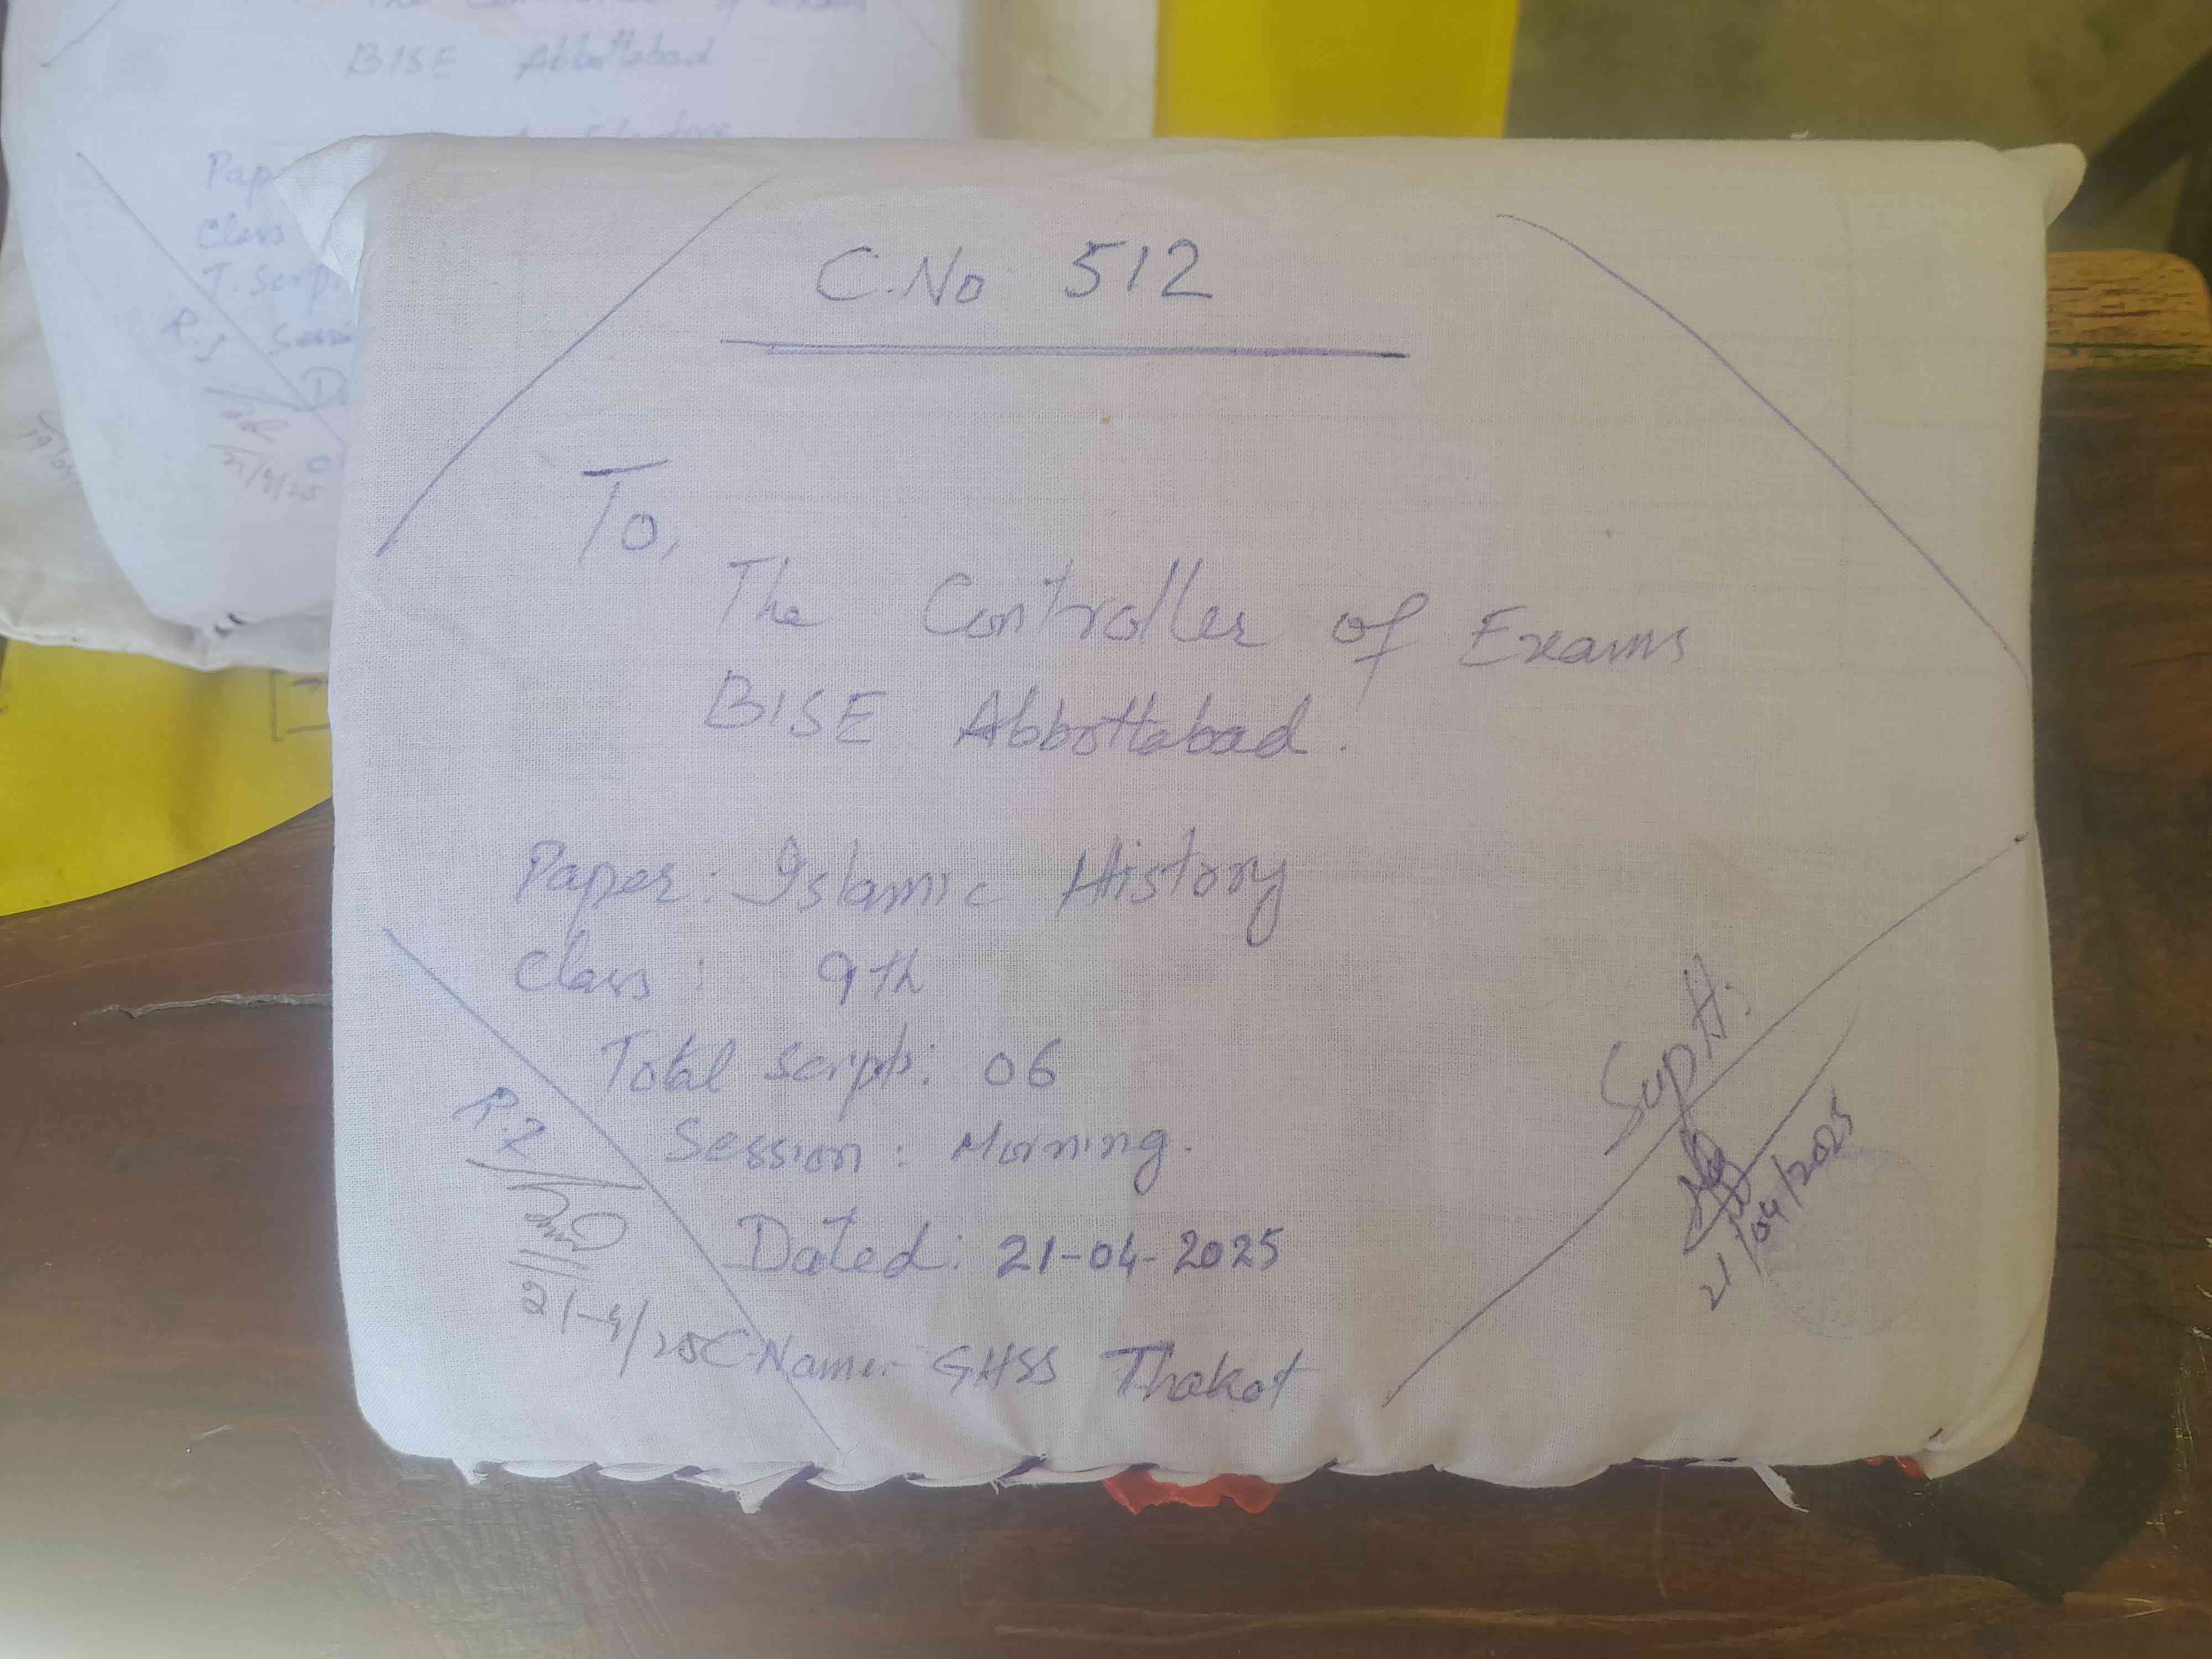 BISE Abbottabad
Class
R.I
21/4/25
C.No 512
To,
The Controller of Exams
BISE Abbottabad.
Paper: Islamic History
Class: 9th
Total scripts: 06
Session: Morning.
Dated: 21-04-2025
C.Name:- GHSS Thakot
R.I
21-4/25
Supdt:
21/04/2025